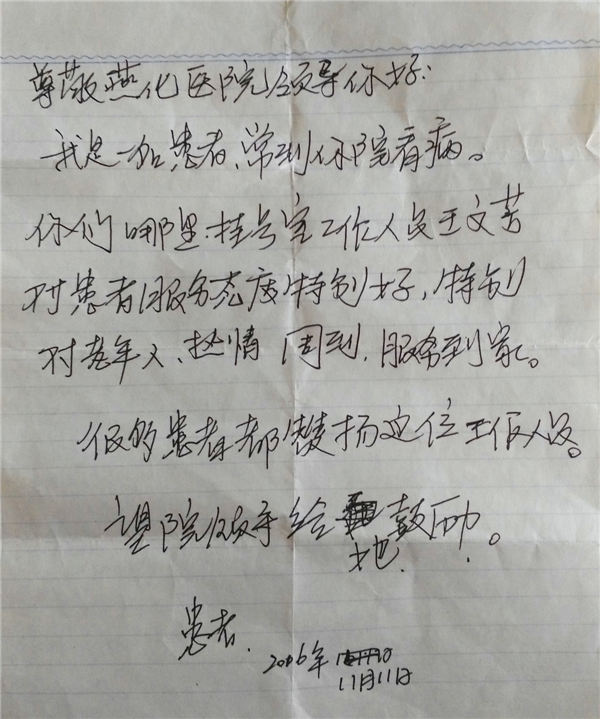 尊敬燕化医院领导你好:
我是一名患者、常到你院看病。
你们哪里挂号室工作人员王文芳
对患者服务态度特别好,特别
对老年人、热情 周到,服务到家。
很多患者都赞扬这位工作人员。
望院领导给她鼓励。
患者.
2016年
11月11日